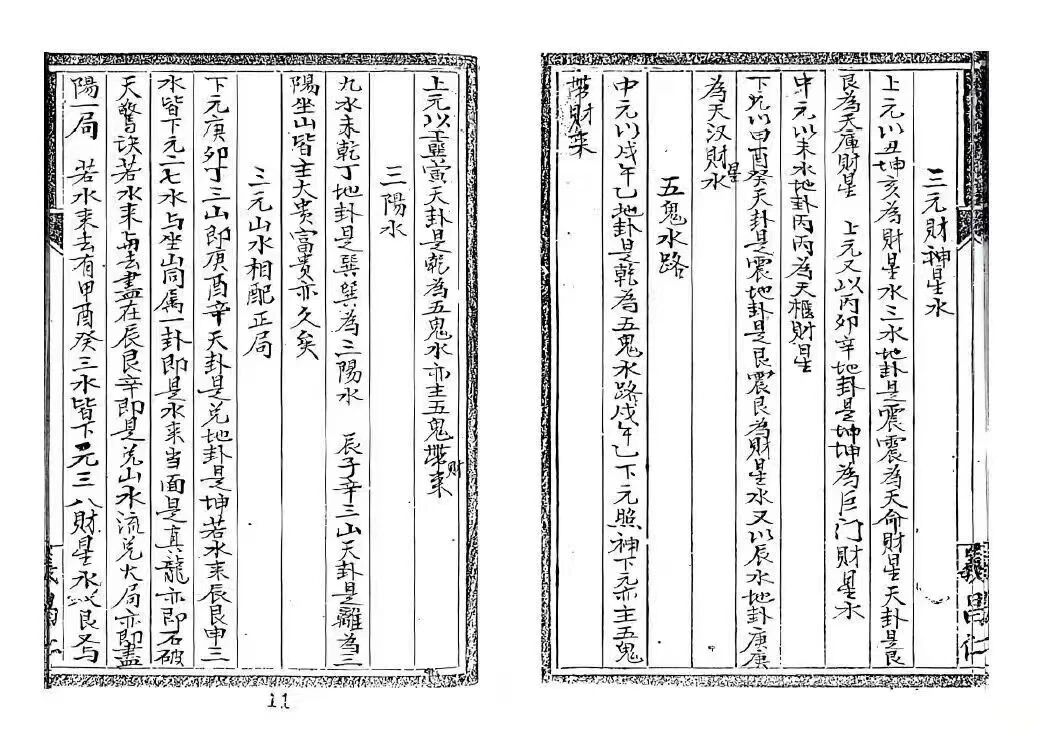 三元財神星水
上元以丑坤亥為財星水三水地卦是震震為天命財星天卦是艮
艮為天庫財星 上元又以丙卯辛地卦是坤坤為巨门財星水
中元以未水地卦丙丙為天樞財星
下元以甲酉癸天卦是震地卦是艮震艮為財星水又以辰水地卦庚庚
為天汉財星水
五鬼水路
中元以戌午乙地卦是乾為五鬼水路戌午乙下元照神下元亦主五鬼
帶財来
義昌仁
上元以壬巽寅天卦是乾為五鬼水亦主五鬼帶財来
三陽水
九水未乾丁地卦是巽巽為三陽水 辰子辛三山天卦是離為三
陽坐山皆主大贵富贵亦久矣
三元山水相配正局
下元庚卯丁三山即庚酉辛天卦是兑地卦是坤若水来辰艮申三
水皆下元二七水与坐山同属一卦即是水来当面是真龍亦即石破
天驚诀若水来与去盡在辰艮辛即是兑山水流兑大局亦即盡
陽一局 若水来去有甲酉癸三水皆下元三八財星水以艮又与
11